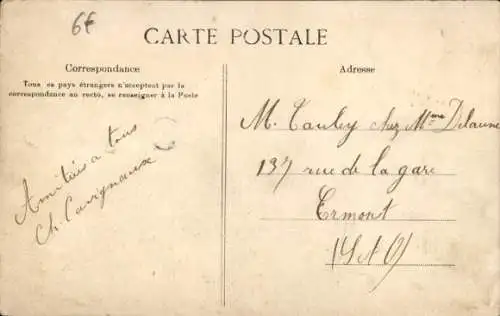 6€
CARTE POSTALE
Correspondance
Tous ces pays étrangers n'acceptent pas la
correspondance au recto, se renseigner à la Poste
Amitiés a tous
Ch. Cavignaux
Adresse
M. Tauley chez Mme Delaune
137 rue de la gare
Ermont
(S et O)